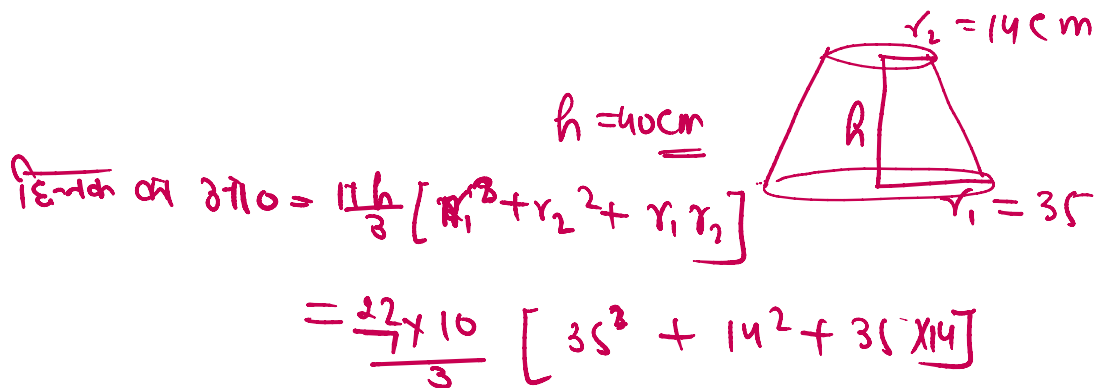 r₂ = 14 cm
h = 40cm
h
r₁ = 35
छिन्नक का आ० = πh/3 [r₁² + r₂² + r₁ r₂]
= 22/7 × 10 / 3 [35² + 14² + 35 × 14]